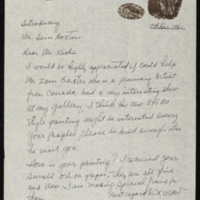 Introducing
Mr Iain Baxter
Dear Mr Kishi
I would be highly appreciated if could help
Mr Iain Baxter who is a promising artist
from Canada, had a very interesting show
at my gallery I think his new
style painting might be interested among
your people. Please be kind enough when
he visit you.
How is your painting? I received your
small oil on paper. They are all nice
and Now I am making special frame for
them. Best regard